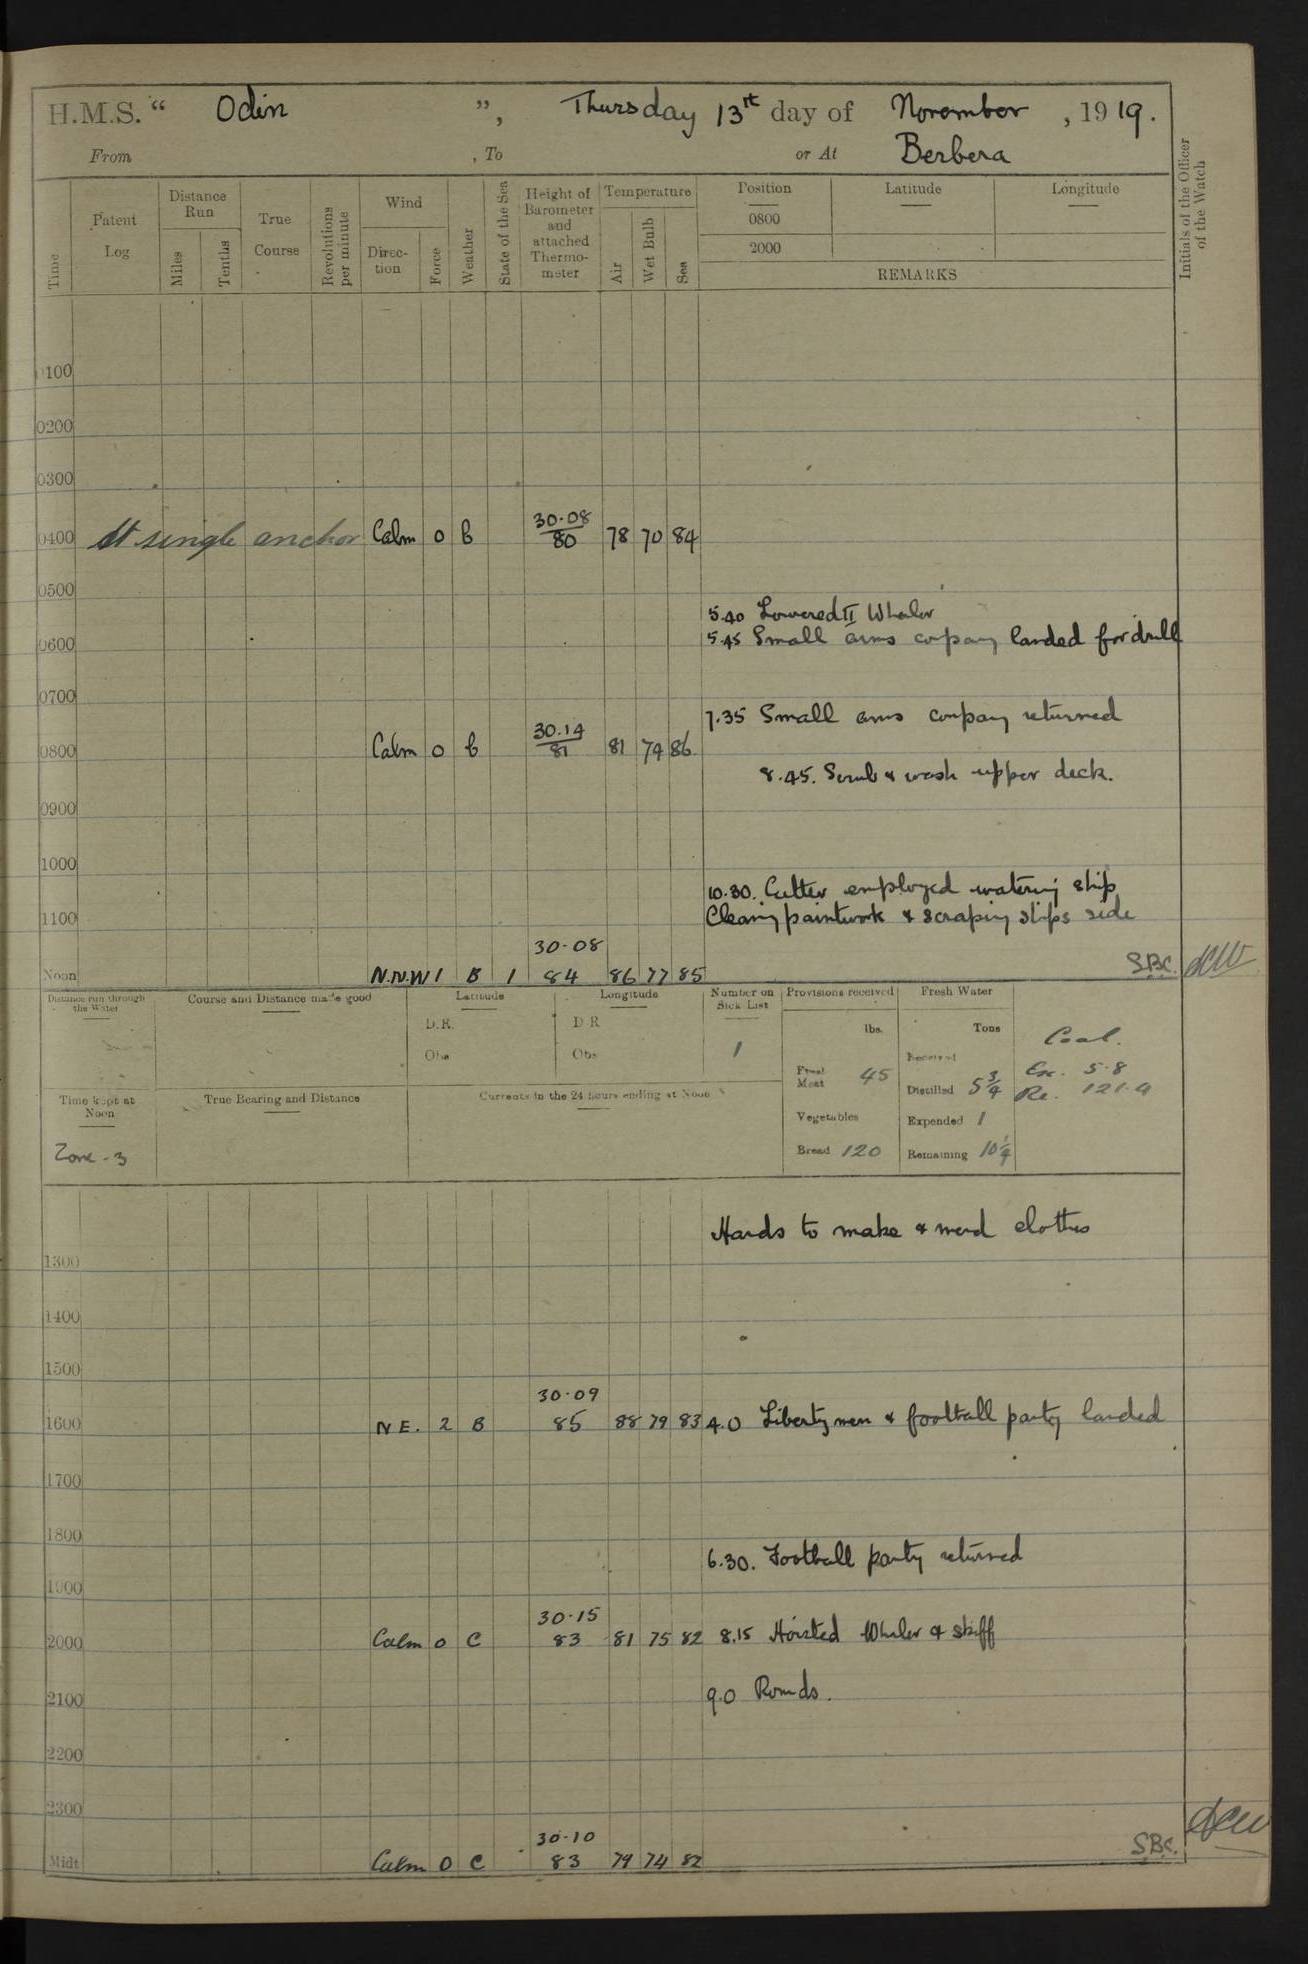 H.M.S. “ Odin ”, Thursday 13rt day of November, 1919.
From , To or At Berbera
Time
Patent Log
Distance Run
Miles
Tenths
True Course
Revolutions per minute
Wind
Direc-tion
Force
Weather
State of the Sea
Height of Barometer and attached Thermo-meter
Temperature
Air
Wet Bulb
Sea
Position Latitude Longitude
0800
2000
REMARKS
Initials of the Officer of the Watch
0100
0200
0300
30.08
0400 At single anchor Calm 0 b 80 78 70 84
0500
5.40 Lowered II Whaler
0600 5.45 Small arms company landed for drill
0700
7.35 Small arms company returned
30.14
0800 Calm 0 b 81 81 74 86
8.45. Scrub & wash upper deck.
0900
1000
10.30. Cutter employed watering ship
1100 Cleaning paintwork & scraping ships side
30.08
Noon N.N.W 1 B 1 84 86 77 85 S.B.C.
Distance run through the Water
Course and Distance made good
Latitude
D.R.
Obs
Longitude
D R
Obs
Number on Sick List
1
Provisions received
lbs.
Fresh Meat 45
Vegetables
Bread 120
Fresh Water
Tons
Received
Distilled 5 3/4
Expended 1
Remaining 10 1/4
Coal.
Ex. 5.8
Re. 121.9
Time kept at Noon
Zone -3
True Bearing and Distance
Currents in the 24 hours ending at Noon
Hands to make & mend clothes
1300
1400
1500
30.09
1600 N E. 2 B 85 88 79 83 4.0 Liberty men & football party landed
1700
1800
6.30. Football party returned
1900
30.15
2000 Calm 0 C 83 81 75 82 8.15 Hoisted Whaler & skiff
2100 9.0 Rounds.
2200
2300
30.10
Midt Calm 0 C 83 79 74 82 S.B.C.